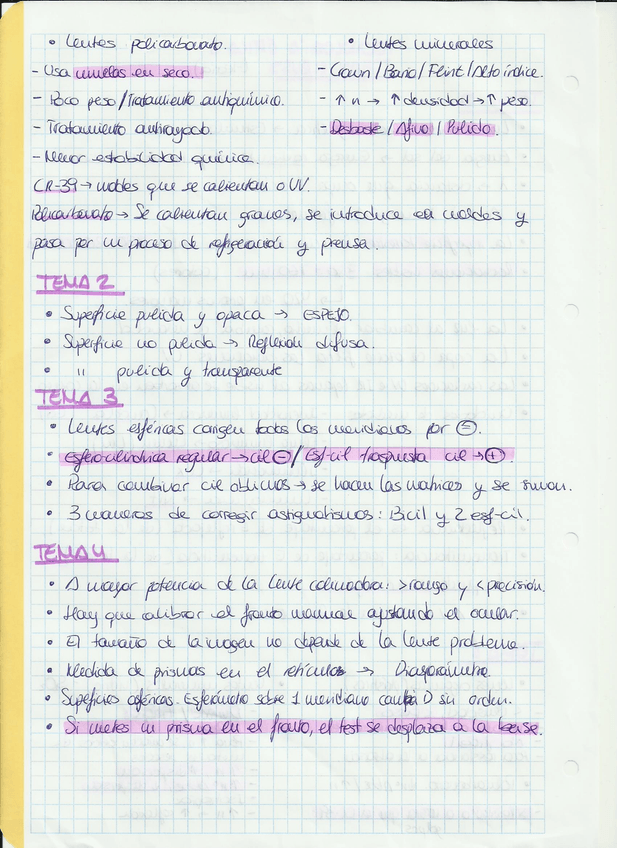 • Lentes policarbonato.
- Usa muelas en seco.
- Poco peso/Tratamiento antiquímico.
- Tratamiento antirayado.
- Menor estabilidad química.
• Lentes minerales
- Crown/Bario/Flint/Alto índice.
- ↑ n → ↑ densidad → ↑ peso.
- Desbaste / Afino / Pulido.
CR-39 → moldes que se calientan o UV.
Policarbonato → Se calientan granos, se introduce en moldes y
pasa por un proceso de refrigeración y prensa.
TEMA 2
• Superficie pulida y opaca → ESPEJO.
• Superficie no pulida → Reflexión difusa.
• " pulida y transparente
TEMA 3
• Lentes esféricas corrigen todos los meridianos por =.
• Esferocilíndrica regular → cil - / Esf-cil traspuesta cil → +
• Para combinar cil oblicuos → se hacen las matrices y se suman.
• 3 maneras de corregir astigmatismos: Bicil y 2 esf-cil.
TEMA 4
• A mayor potencia de la lente colimadora: > rango y < precisión.
• Hay que calibrar el fronto manual ajustando el ocular.
• El tamaño de la imagen no depende de la lente problema.
• Medida de prismas en el retículo → Diasporámetro.
• Superficies asféricas. Esferómetro sobre 1 meridiano cambia D su orden.
• Si metes un prisma en el fronto, el test se desplaza a la base.